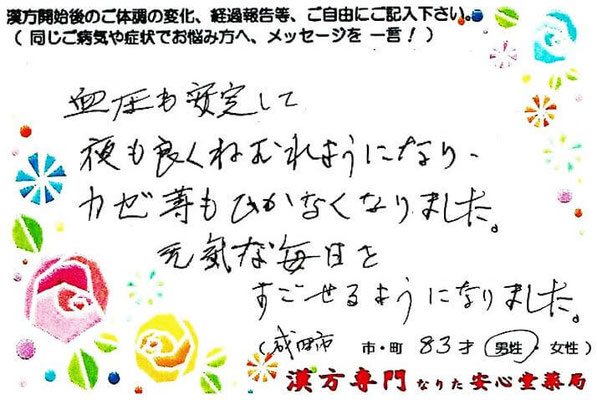 漢方開始後のご体調の変化、経過報告等、ご自由にご記入下さい。
( 同じご病気や症状でお悩み方へ、メッセージを 一言！)
血圧も安定して
夜も良くねむれるようになり、
カゼ等もひかなくなりました。
元気な毎日を
すごせるようになりました。
(成田市 市・町 83才 男性・女性)
漢方専門 なりた 安心堂薬局